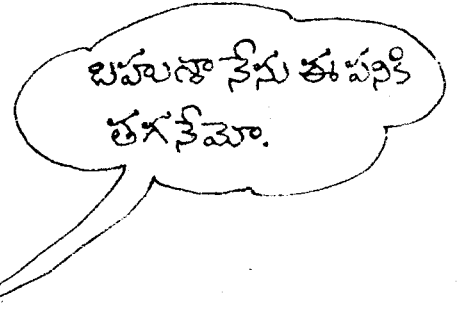 బహుశా నేను ఈ పనికి
తగనేమో.